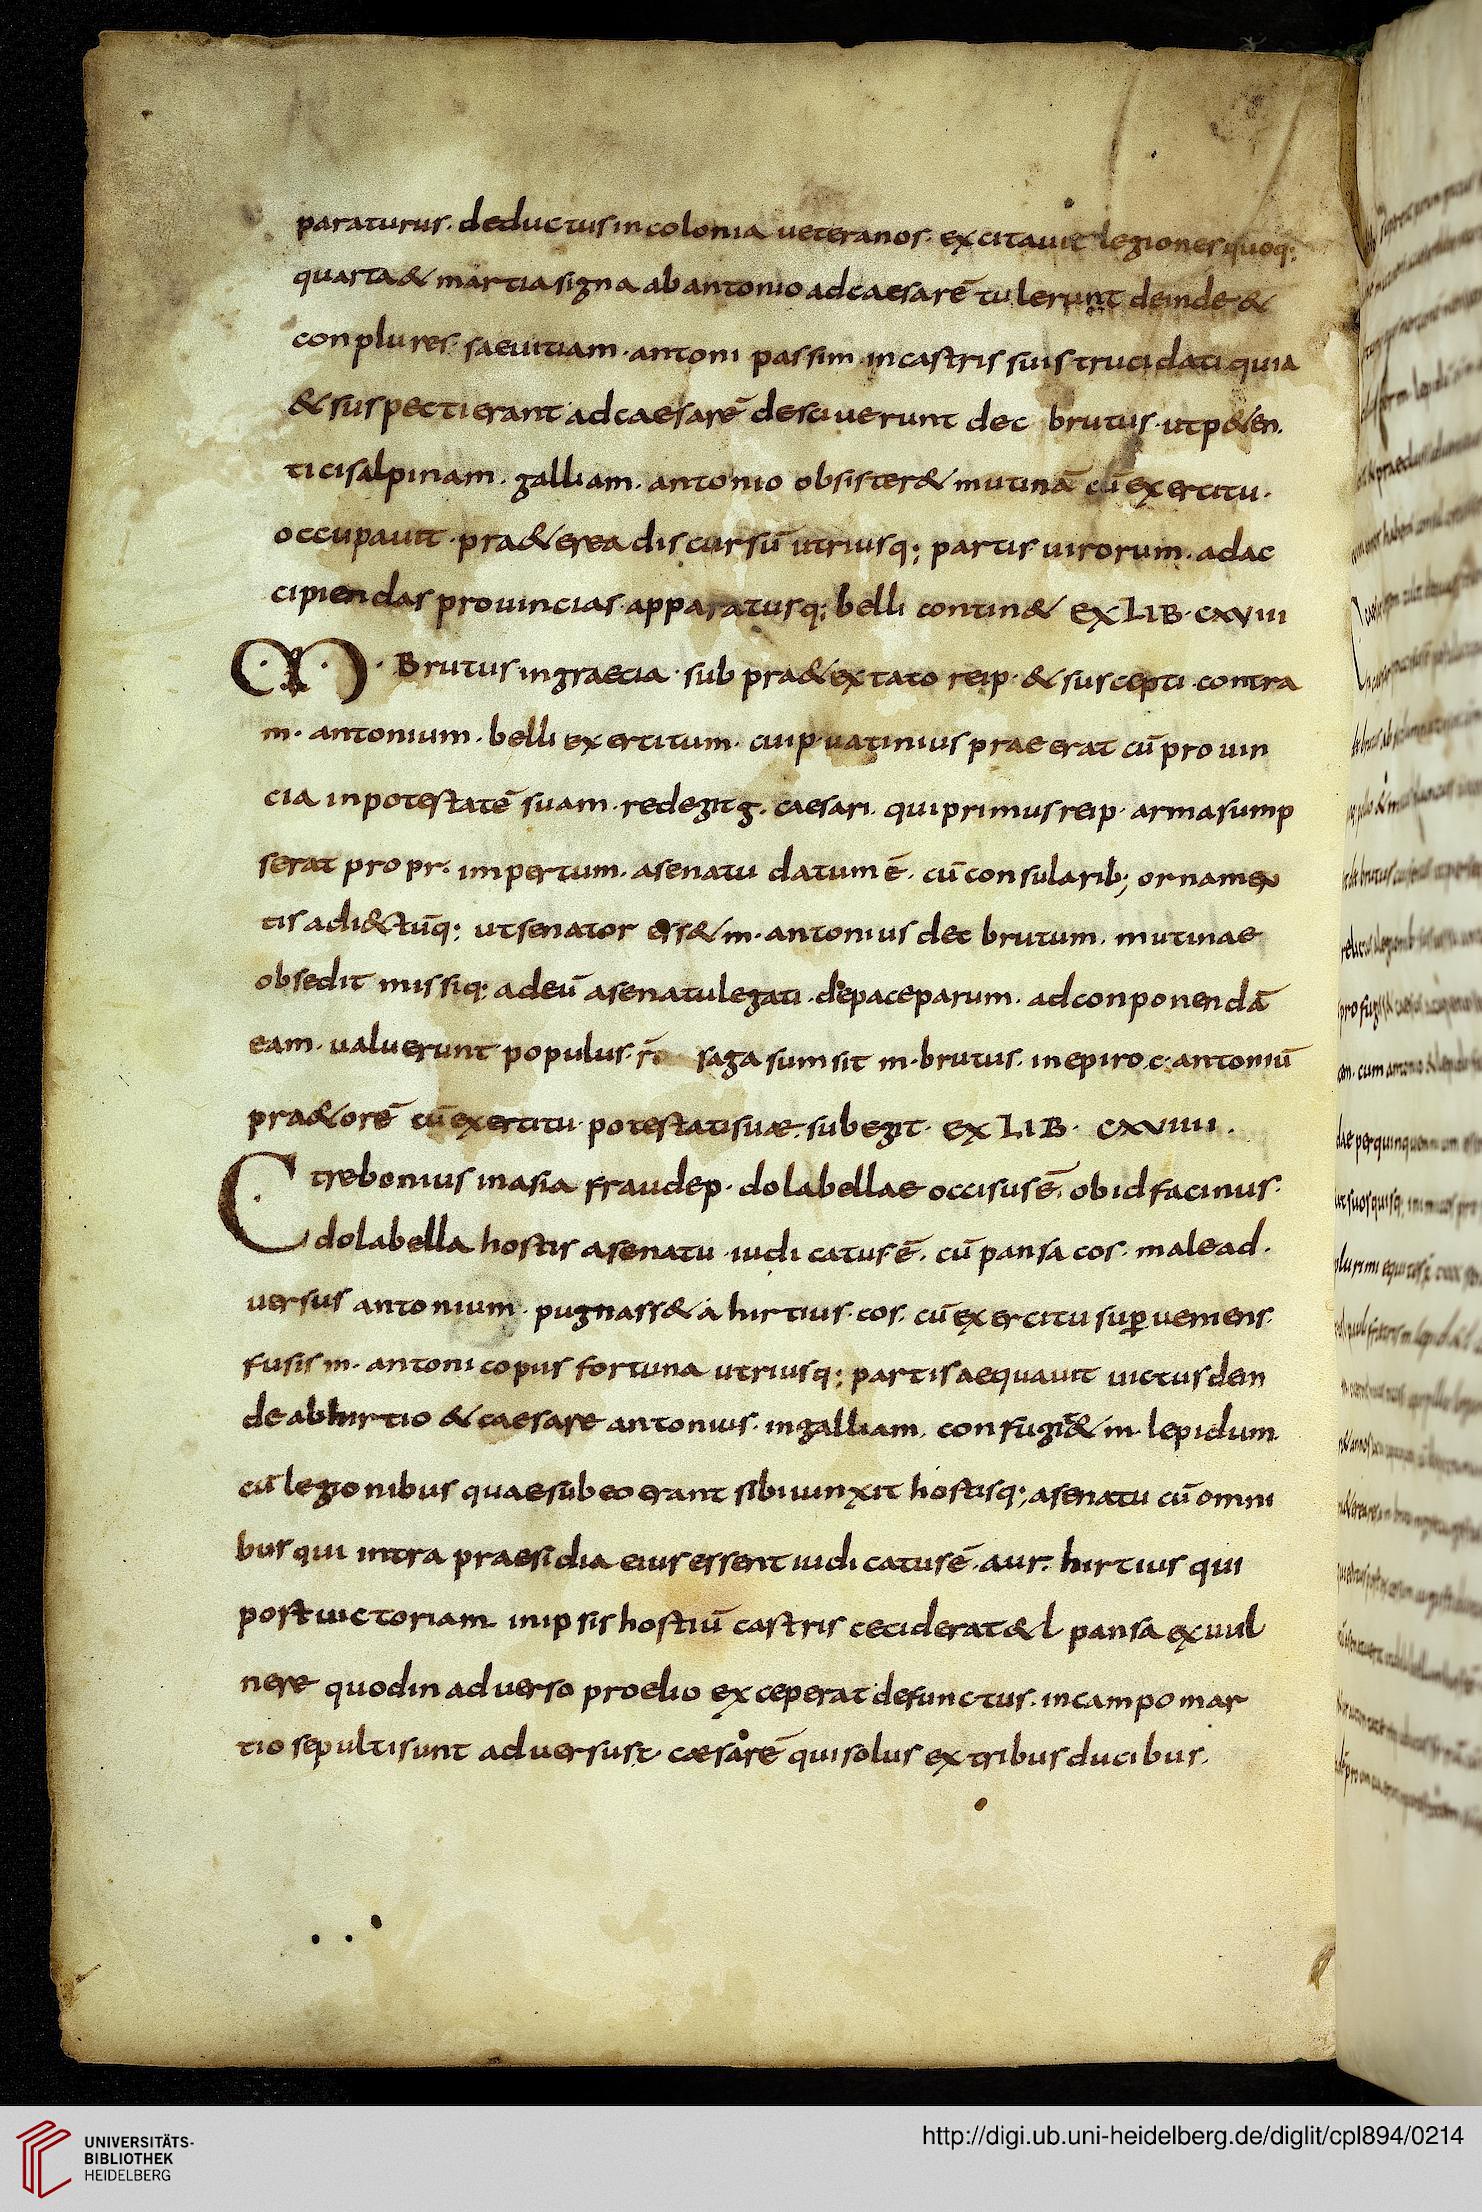 paraturus. deductus in colonia ueteranos. excitauit legiones quoq;
quarta & martia signa ab antonio ad caesarē tulerunt deinde &
conplures saeuitiam. antoni passim in castris suis trucidati quia
& suspecti erant ad caesarē desciuerunt dec brutus. ut p&en.
ti cisalpinam. galliam. antonio obsister& mutinā cū exercitu.
occupauit. pra&erea discursū utriusq; partis uirorum. ad ac
cipiendas prouincias. apparatusq; belli contin& EX LIB. CXVIII
M. Brutus. in graecia. sub pra&extato reip. & suscepti contra
m. antonium. belli exercitum. cui p. uatinius prae erat cū prouin
cia in potestatē suam. redegit g. caesari. qui primus reip. arma sump
serat pro pr. impertum. a senatu datum ē. cū consularib; ornamen
tis adi&tūq; ut senator ess& m. antonius dec brutum. mutinae
obsedit missiq; ad eū a senatu legati. de pace parum. ad conponendā
eam. ualuerunt populus. ro saga sumsit m. brutus. in epiro. c. antoniū
pra&orē cū exercitu. potestati suae. subegit. EX LIB. CXVIIII.
C trebonius in asia fraude p. dolabellae occisus ē. ob id facinus.
dolabella hostis a senatu. iudicatus ē. cū pansa cos. male ad.
uersus antonium. pugnass& a hirtius. cos. cū exercitu superueniens.
fusis m. antoni copus fortuna utriusq; partis aequauit uictus dein
de ab hirtio & caesare antonius. in galliam. confugit & m lepidum.
cū legionibus quae sub eo erant sibi iunxit hostisq; a senatu cū omni
bus qui intra praesidia eius essent iudicatus ē. aur. hirtius qui
post uictoriam in ipsis hostiū castris ceciderat & l pansa ex uul
nere quod in aduerso proelio exceperat defunctus. in campo mar
tio sepulti sunt aduersus t. caesarē qui solus ex tribus ducibus.
UNIVERSITÄTS-
BIBLIOTHEK
HEIDELBERG
http://digi.ub.uni-heidelberg.de/diglit/cpl894/0214